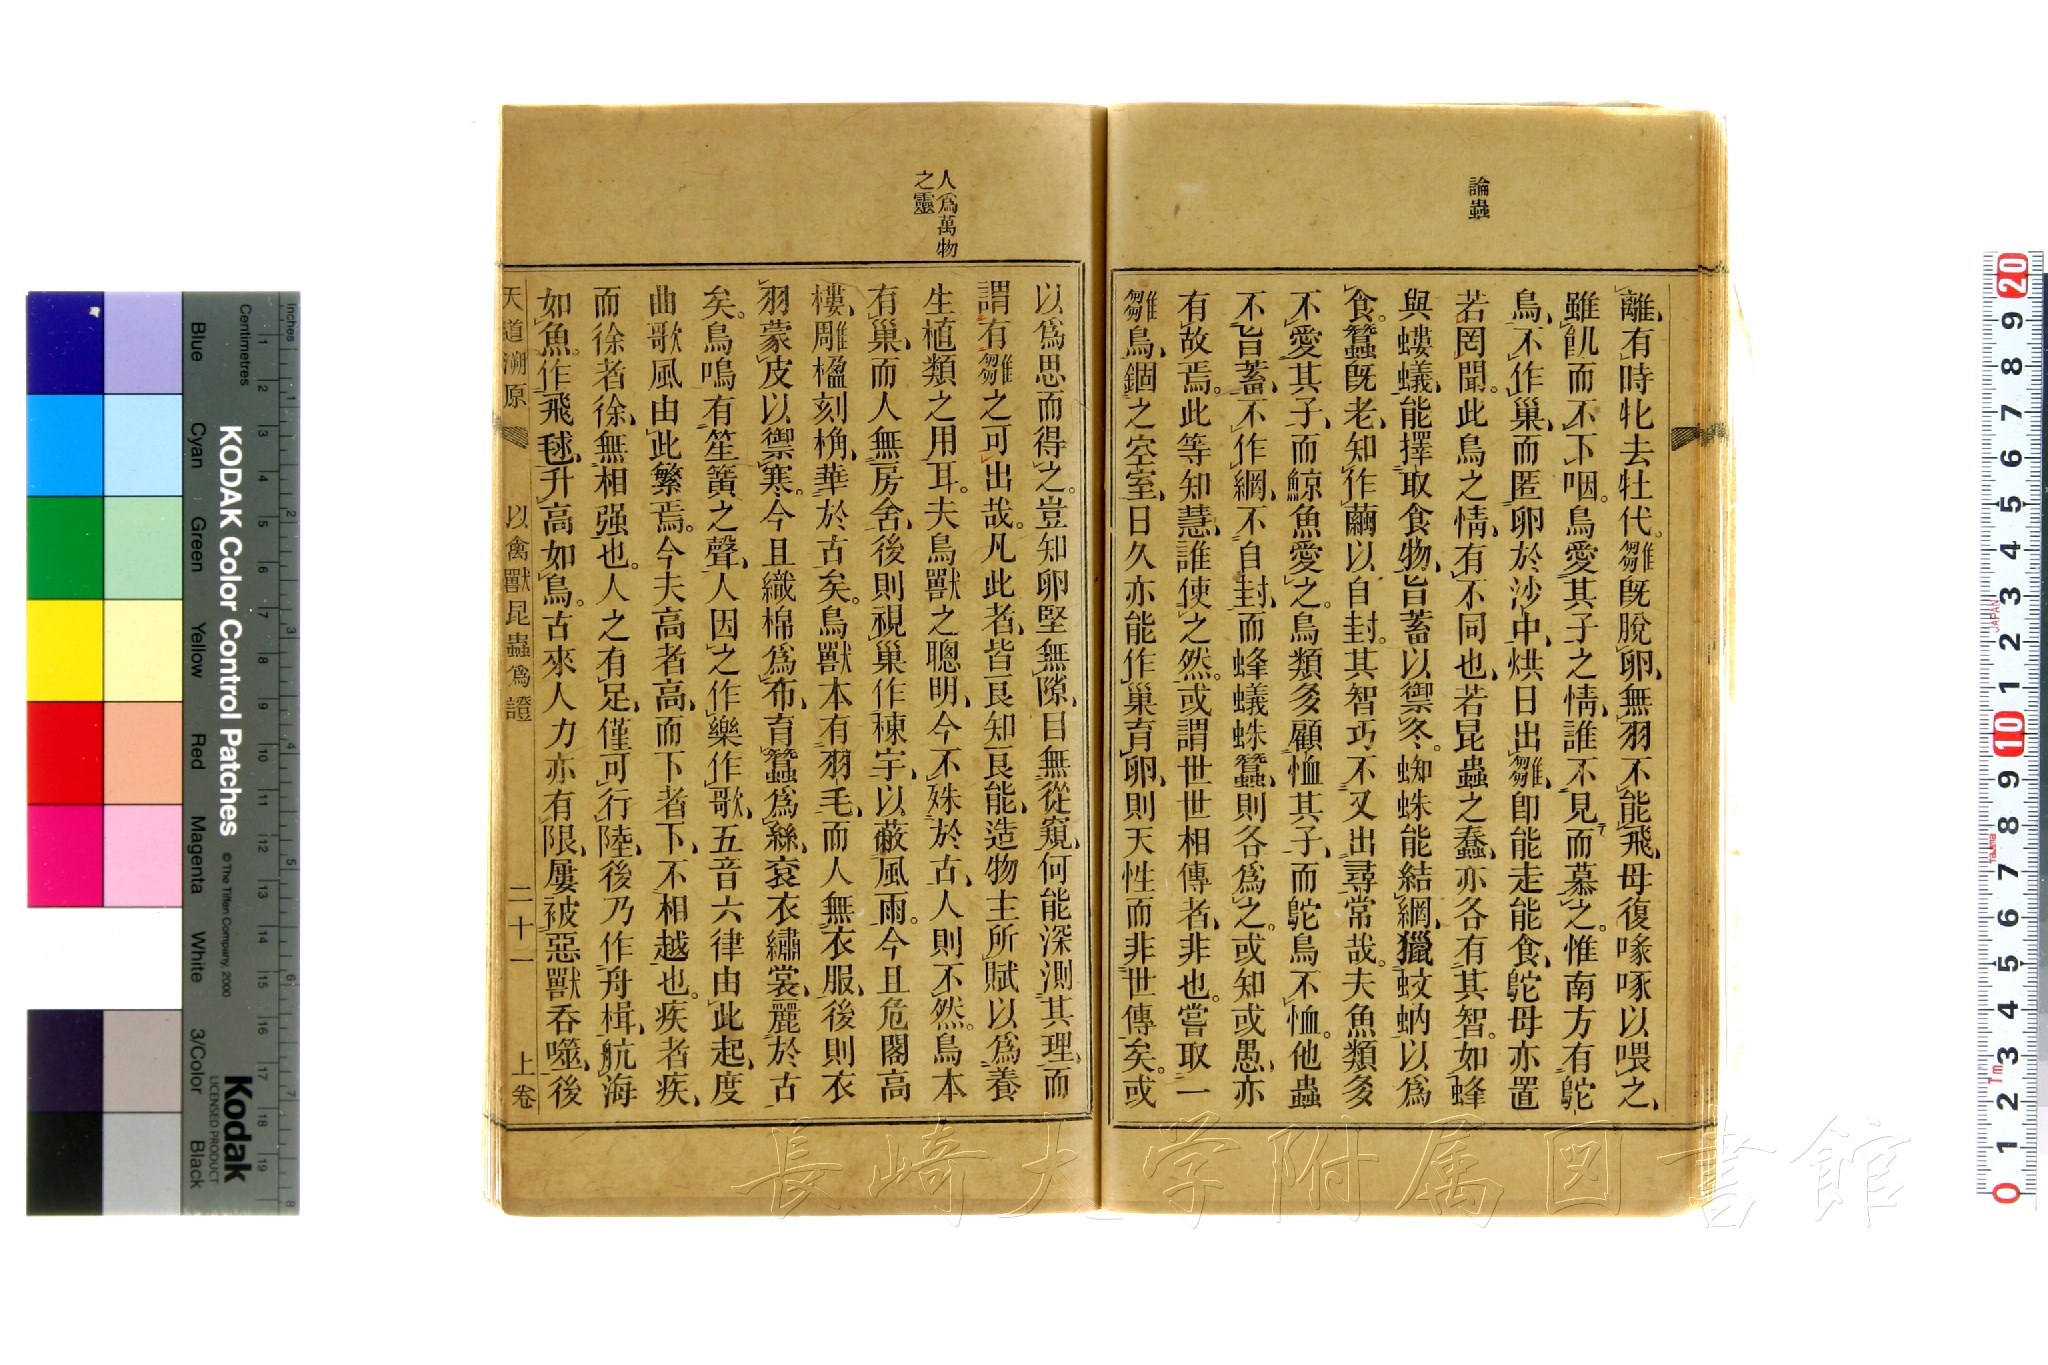 論蟲
離有時牝去牡代。雛既脫卵、無羽不能飛、母復啄啄以喂之、
雖飢而不下咽。鳥愛其子之情、誰不見而慕之。惟南方有鴕
鳥、不作巢、而匿卵於沙中、烘日出雛、卽能走能食、鴕母亦置
若罔聞。此鳥之情、有不同也、若昆蟲之蠢、亦各有其智。如蜂
與螻蟻、能擇取食物、旨蓄以禦冬。蜘蛛能結網、獵蚊蚋以爲
食。蠶旣老、知作繭以自封。其智巧不又出尋常哉。夫魚類多
不愛其子、而鯨魚愛之。鳥類多顧恤其子、而鴕鳥不恤。他蟲
不旨蓄、不作網、不自封、而蜂蟻蛛蠶、則各爲之。或知或愚、亦
有故焉。此等知慧、誰使之然。或謂世世相傳者、非也。嘗取一
雛鳥、錮之空室、日久亦能作巢育卵、則天性而非世傳矣。或
人爲萬物
之靈
以爲思而得之。豈知卵堅無隙、目無從窺、何能深測其理、而
謂有雛之可出哉。凡此者、皆良知良能、造物主所賦以爲養
生植類之用耳。夫鳥獸之聰明、今不殊於古、人則不然。鳥本
有巢、而人無房舍、後則視巢作棟宇、以蔽風雨。今且危閣高
樓、雕楹刻桷、華於古矣。鳥獸本有羽毛、而人無衣服、後則衣
羽蒙皮以禦寒。今且織棉爲布、育蠶爲絲、袞衣繡裳、麗於古
矣。鳥鳴有笙簧之聲、人因之作樂作歌、五音六律由此起、度
曲歌風由此繁焉。今夫高者高、而下者下、不相越也。疾者疾、
而徐者徐、無相强也。人之有足、僅可行陸、後乃作舟楫、航海
如魚。作飛毬、升高如鳥。古來人力亦有限、屢被惡獸吞噬、後
天道溯原 以禽獸昆蟲爲證 二十一 上卷
長崎大学附属図書館
KODAK Color Control Patches
© The Tiffen Company, 2000
Kodak
LICENSED PRODUCT
Inches
Centimetres
Blue
Cyan
Green
Yellow
Red
Magenta
White
3/Color
Black
JAPAN
Tajima